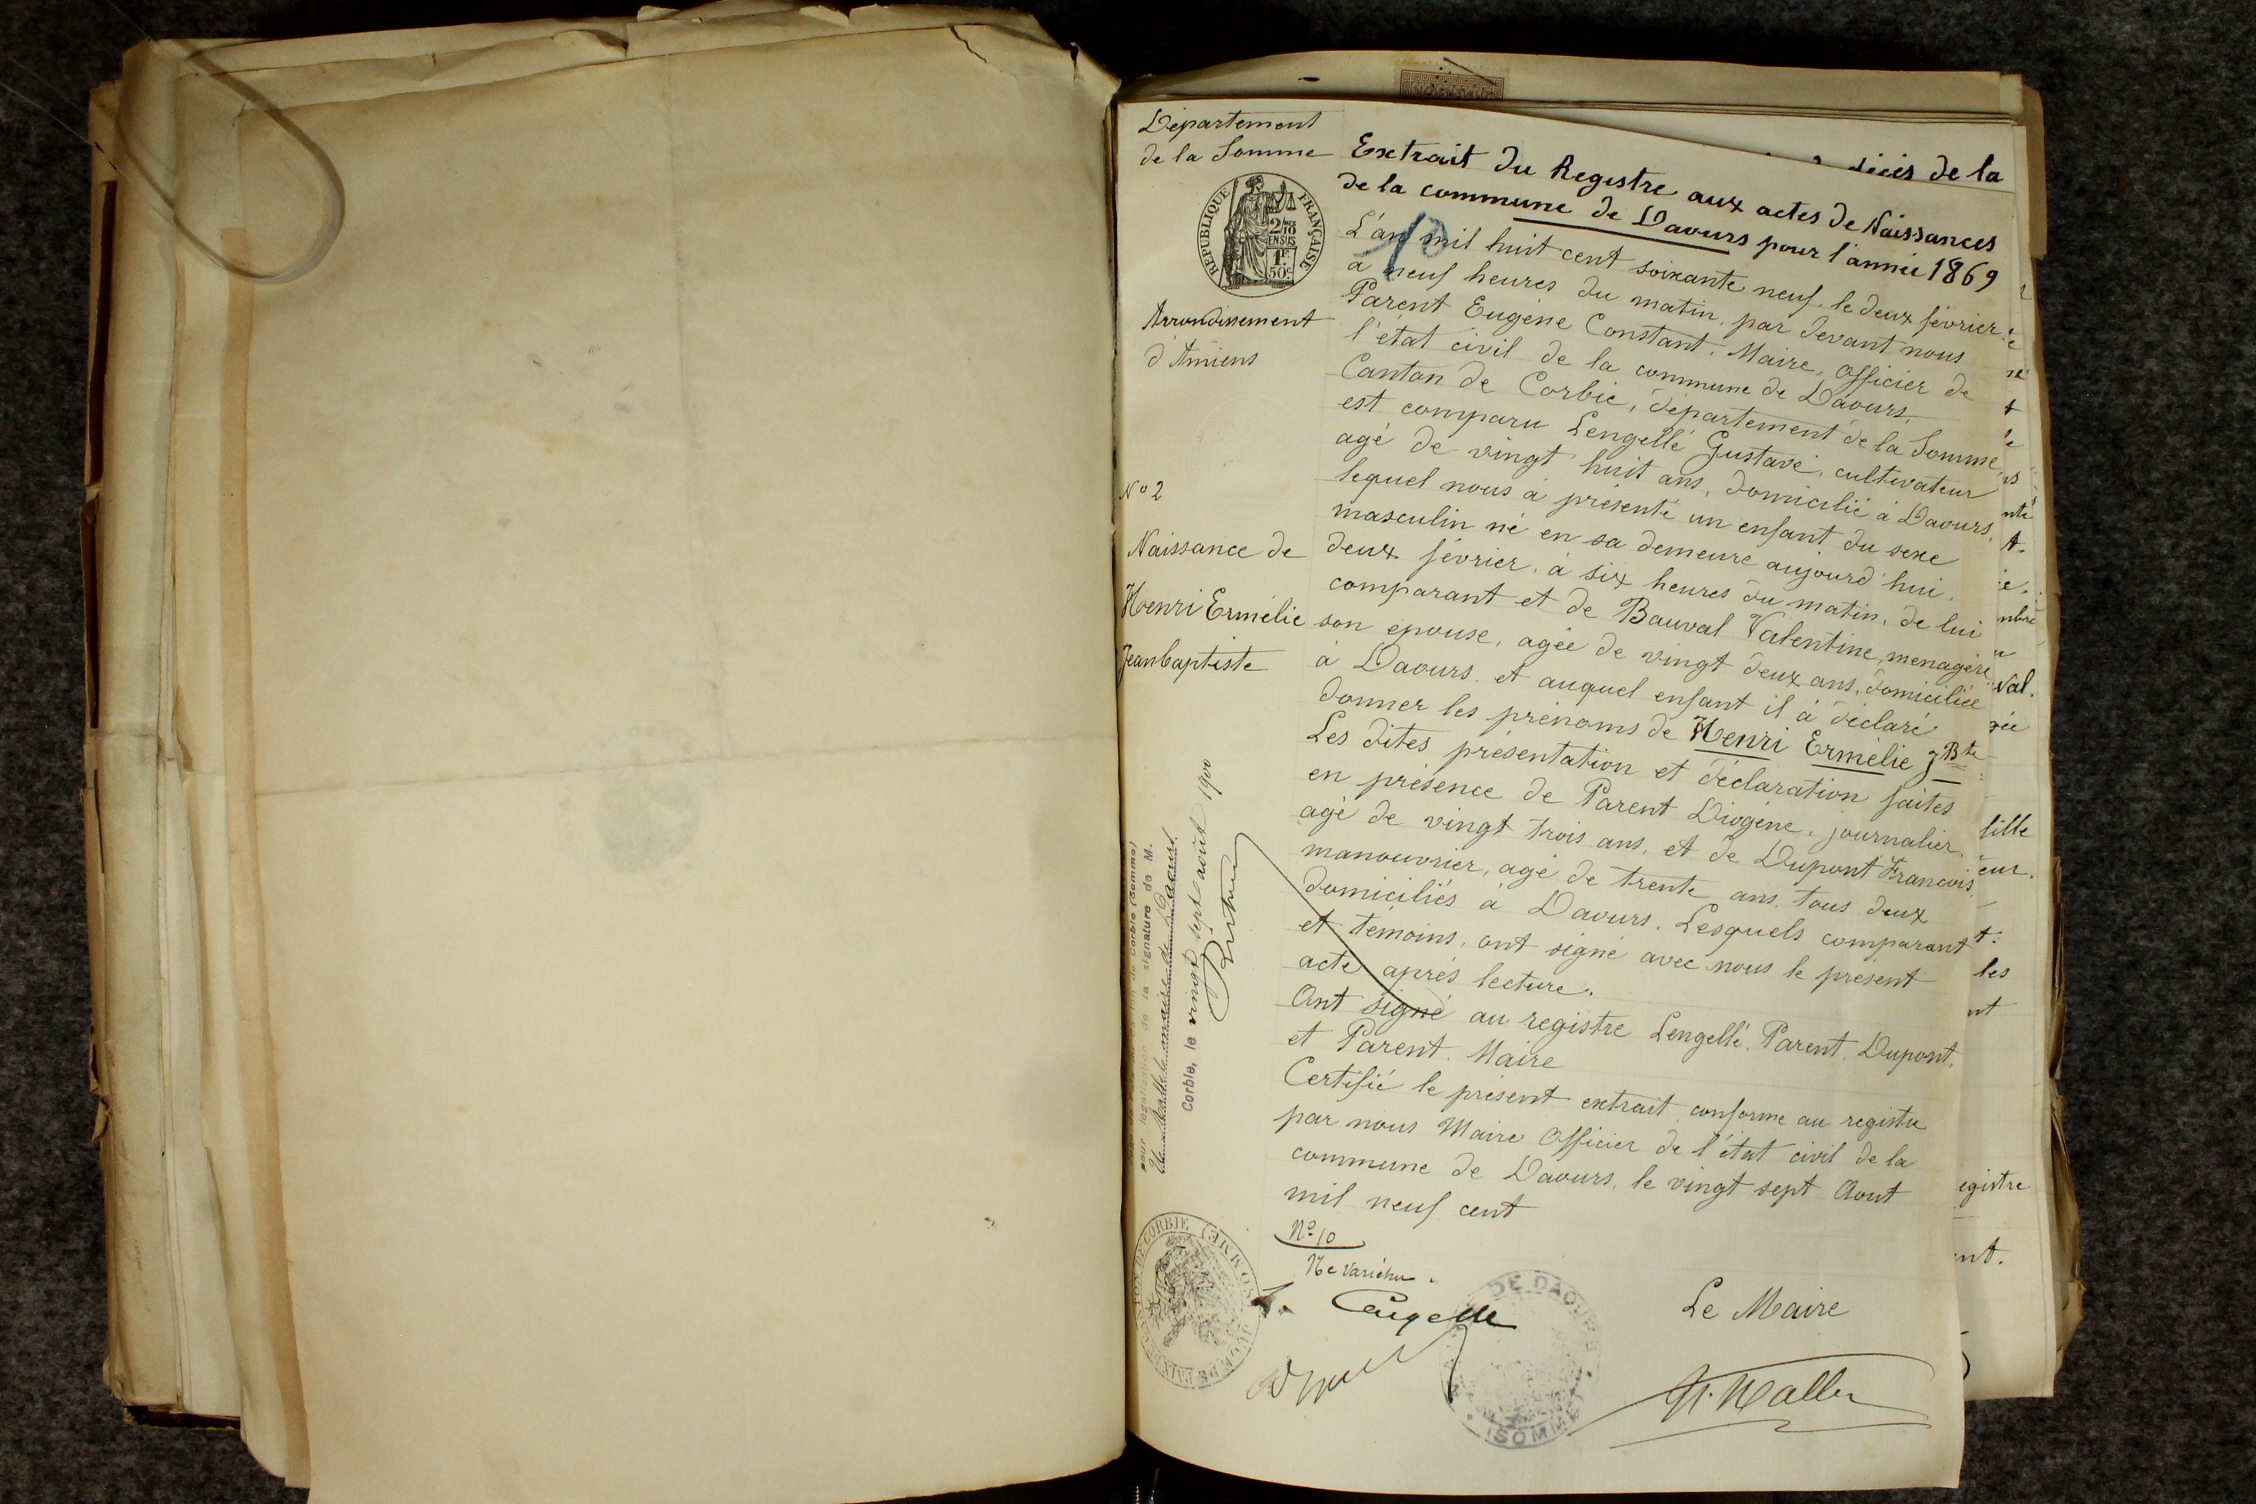 Département
de la Somme
RÉPUBLIQUE FRANÇAISE
2/10
EN SUS
1F
50c
Arrondissement
d'Amiens
No 2
Naissance de
Henri Ermélie
Jean baptiste
décès de la
Extrait du Registre aux actes de Naissances
de la commune de Daours pour l'année 1869
10
L'an mil huit cent soixante neuf, le deux février
à neuf heures du matin, par devant nous
Parent Eugène Constant, Maire, officier de
l'état civil de la commune de Daours,
Canton de Corbie, département de la Somme,
est comparu Lengellé Gustave, cultivateur
agé de vingt huit ans, domicilié à Daours,
lequel nous à présenté un enfant du sexe
masculin né en sa demeure aujourd'hui
deux février, à six heures du matin, de lui
comparant et de Bauval Valentine, menagère
son épouse, agée de vingt deux ans, domiciliée
à Daours. et auquel enfant il à déclaré
donner les prénoms de Henri Ermélie J Bte
Les dites présentation et déclaration faites
en présence de Parent Diogène, journalier,
agé de vingt trois ans, et de Dupont Francois,
manouvrier, agé de trente ans, tous deux
domiciliés à Daours. Lesquels comparant
et témoins, ont signé avec nous le présent
acte après lecture.
Ont signé au registre Lengellé, Parent, Dupont,
et Parent. Maire
Certifié le présent extrait conforme au registre
par nous Maire Officier de l'état civil de la
commune de Daours, le vingt sept Aout
mil neuf cent
No 10
Ne varietur.
Lengellé
Le Maire
pour légalisation de la signature de M.
maire de Daours
Corbie, le vingt sept août 1900
CANTON DE CORBIE (SOMME) JUGE DE PAIX
MAIRIE DE DAOURS
(SOMME)
fille
eur.
les
nt
egistre
ent.